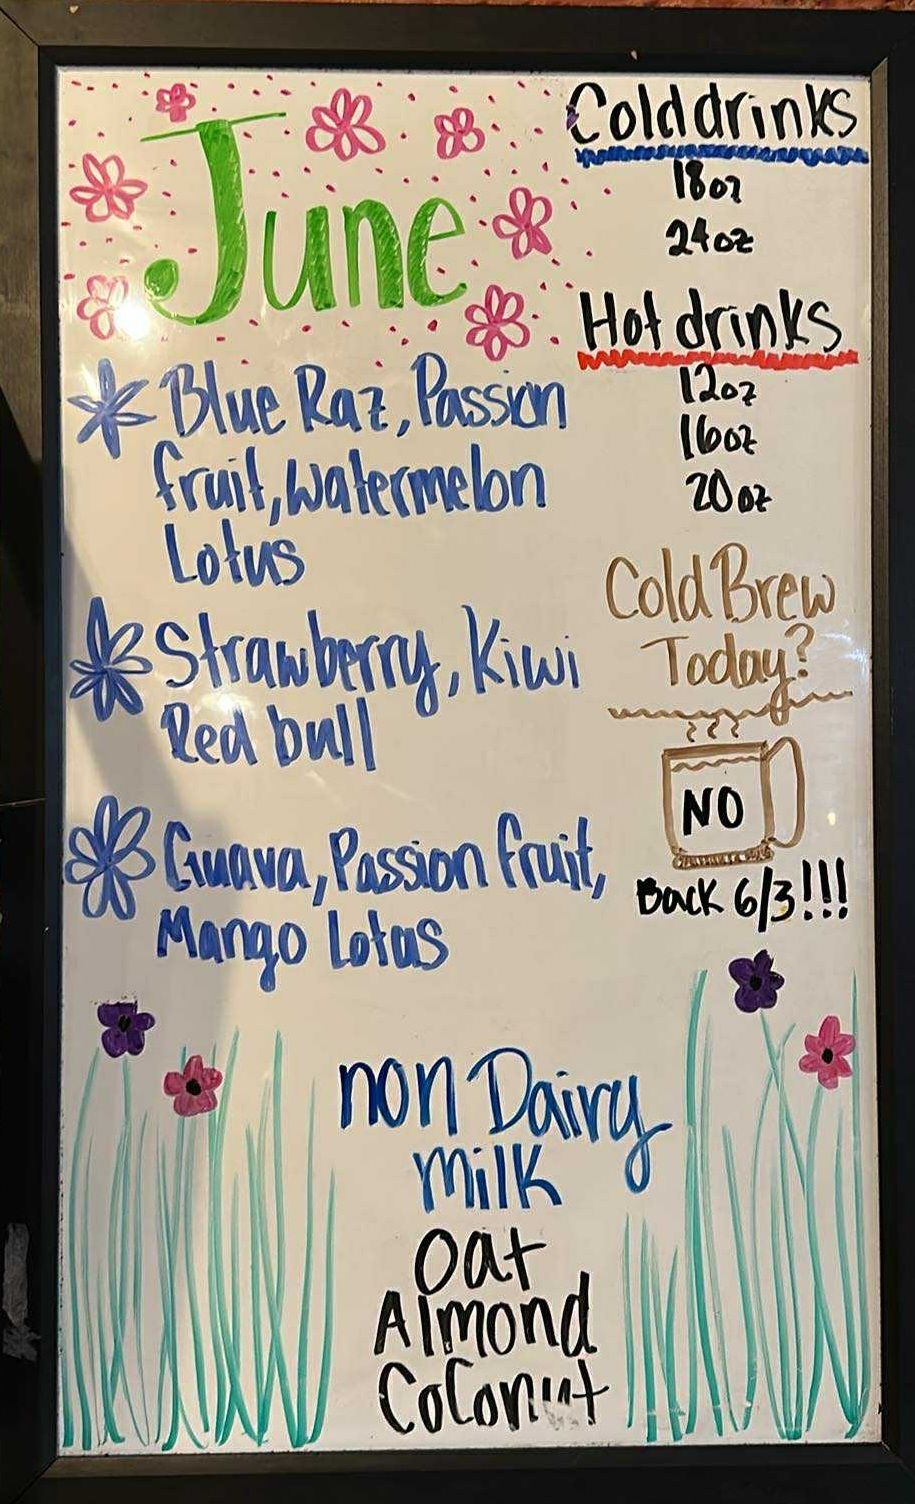 June
Blue Raz, Passion
fruit, watermelon
Lotus
Strawberry, Kiwi
Red bull
Guava, Passion fruit,
Mango Lotus
Cold drinks
18oz
24oz
Hot drinks
12oz
16oz
20oz
Cold Brew
Today?
NO
Back 6/3!!!
non Dairy
milk
oat
Almond
Coconut